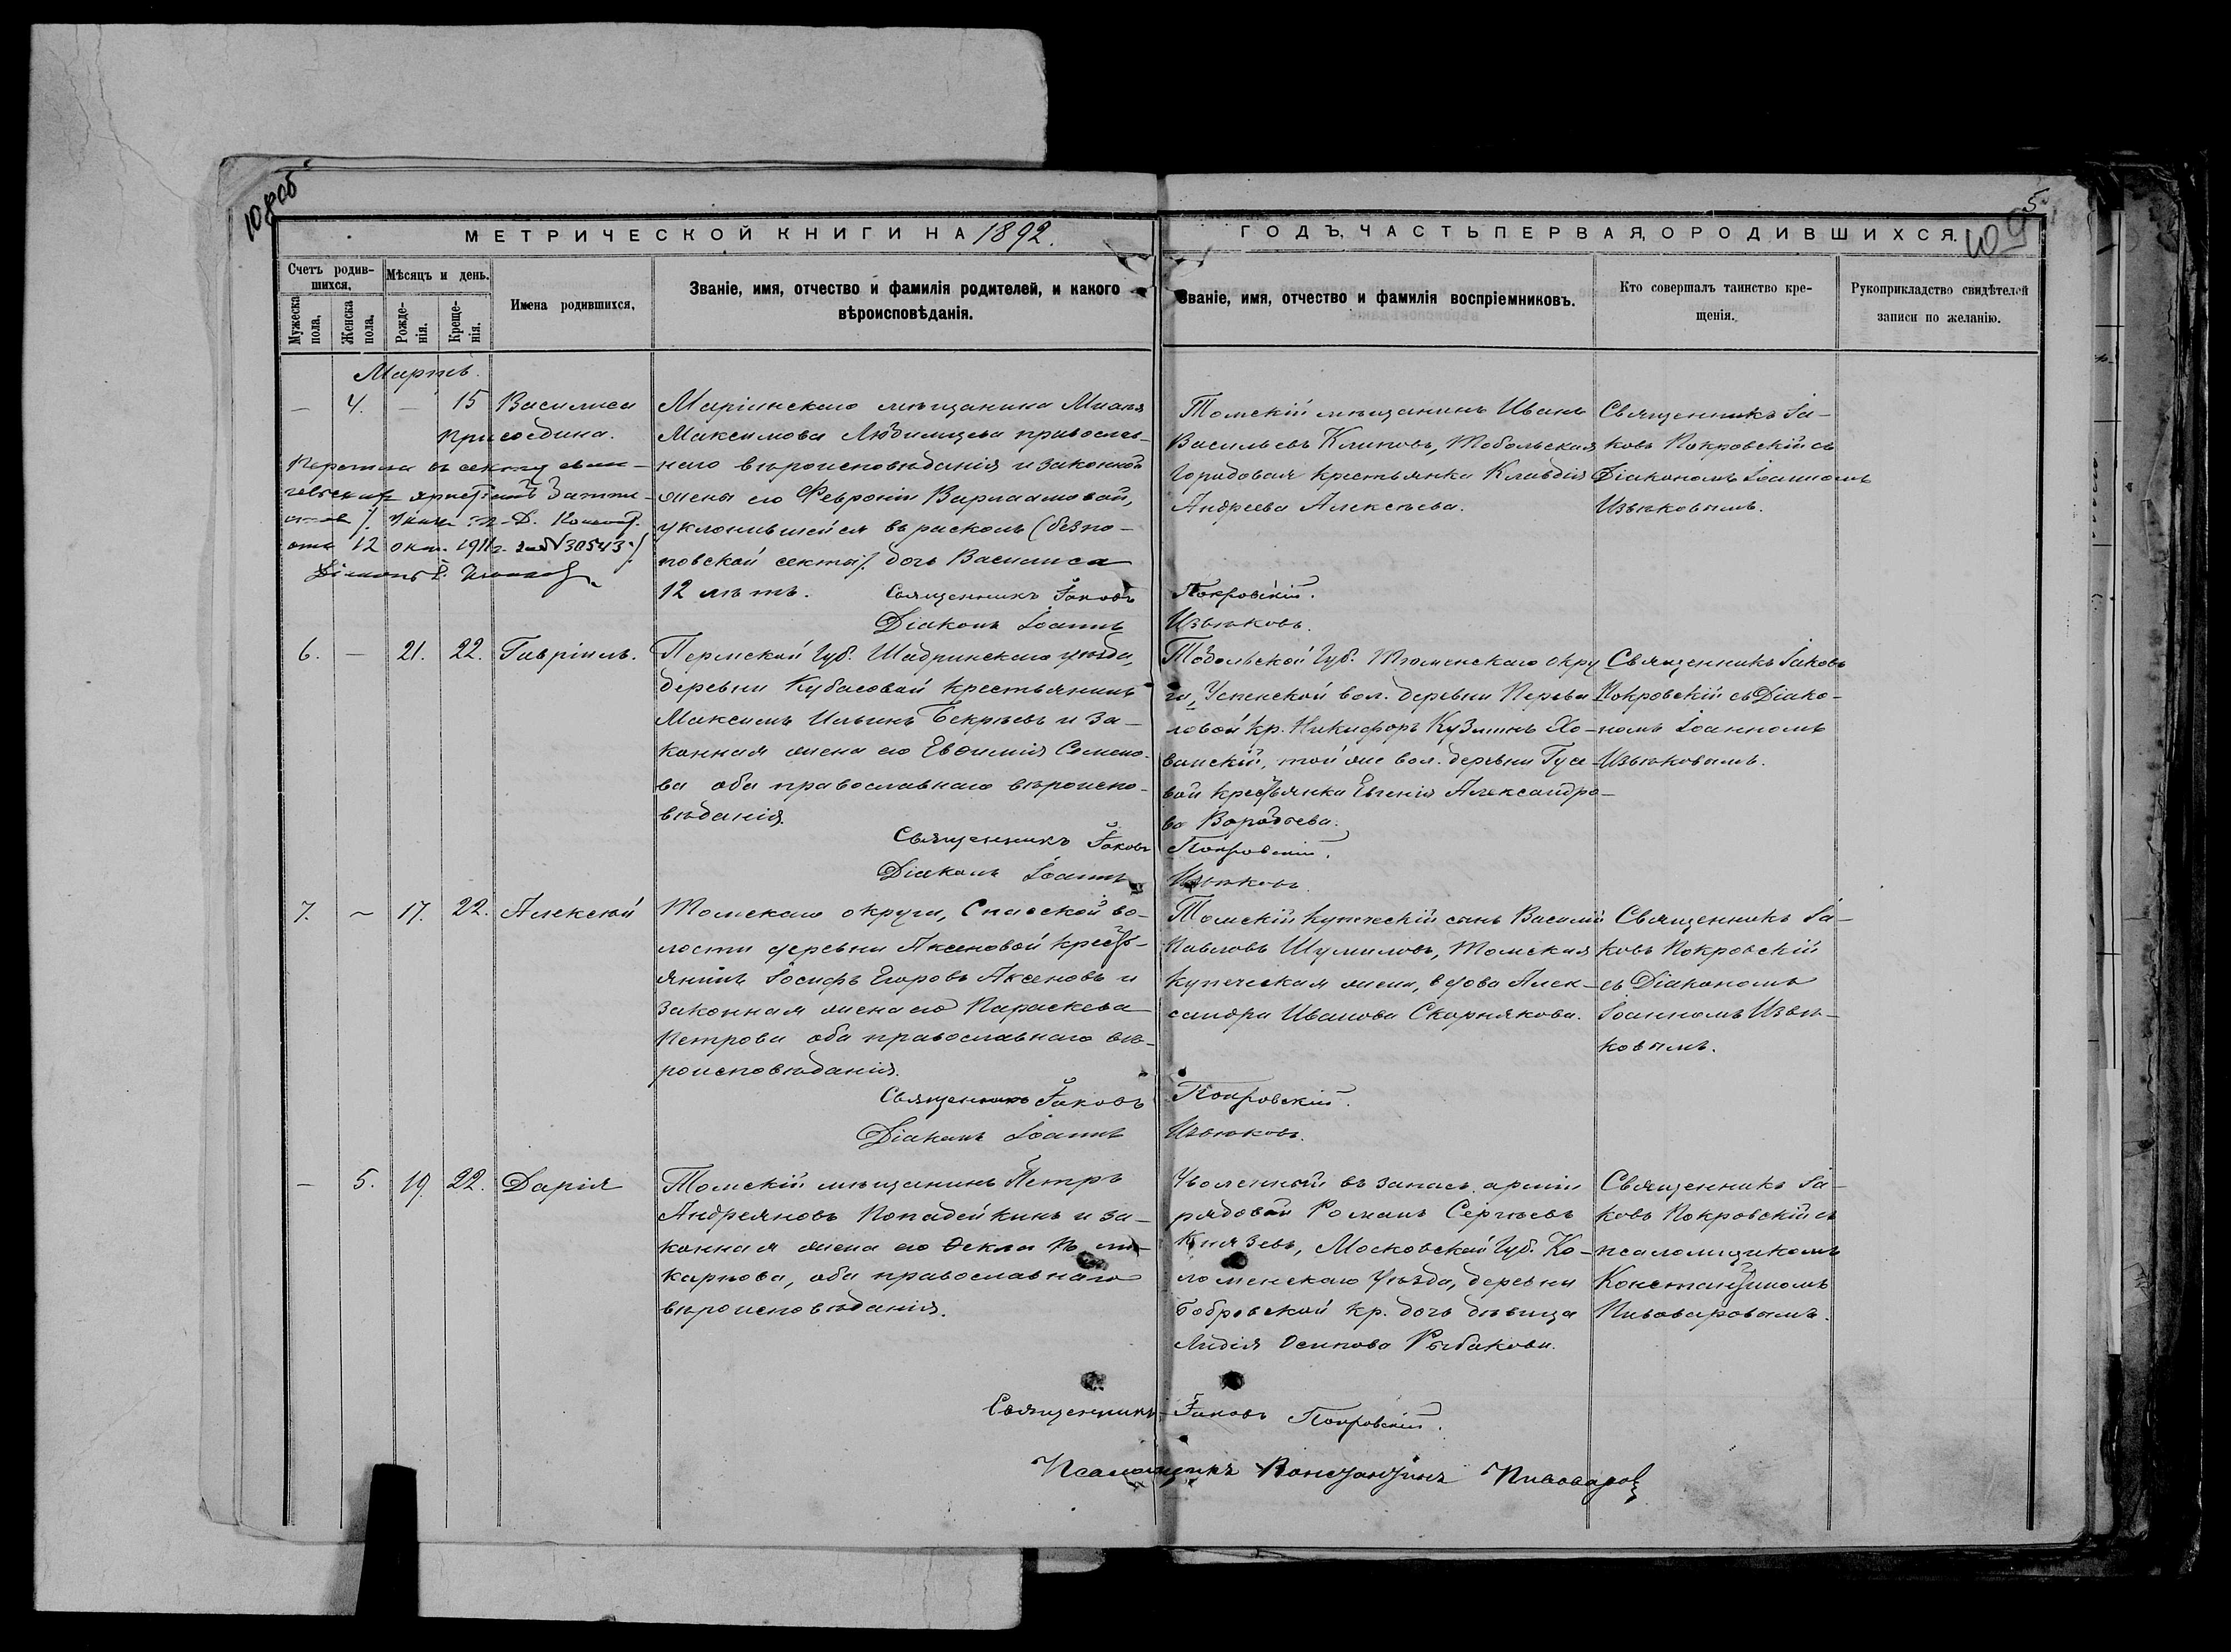 108об
5
109
МЕТРИЧЕСКОЙ КНИГИ НА 1892.
ГОДЪ, ЧАСТЬ ПЕРВАЯ, О РОДИВШИХСЯ.
Счетъ родив-
шихся.
Мужеска пола.
Женска пола.
Мѣсяцъ и день.
Рожде-
нія.
Креще-
нія.
Имена родившихся.
Званіе, имя, отчество и фамилія родителей, и какого
вѣроисповѣданія.
Званіе, имя, отчество и фамилія воспріемниковъ.
Кто совершалъ таинство кре-
щенія.
Рукоприкладство свидѣтелей
записи по желанію.
Мартъ.
— 4. — 15 Василиса
присоедина.
Перешла въ секту еван-
от 12 окт. 1911 г. за № 30543
Маріинскаго мѣщанина
Максимова Любимцева православ-
наго вѣроисповѣданія и законной
жены его Февроніи Варлаамовой,
уклонившейся въ расколъ (безпо-
повской секты). дочь Василиса
12 лѣтъ.
Священникъ Іаковъ Покровскій.
Діаконъ Іоаннъ Извѣковъ.
Томскій мѣщанинъ Иванъ
Васильевъ Климовъ, Тобольская
городовая крестьянка Клавдія
Андреева Алексѣева.
Священникъ Іа-
ковъ Покровскій съ
Діакономъ Іоанномъ
Извѣковымъ.
6. — 21. 22. Гавріилъ.
Пермской губ. Шадринскаго уѣзда,
деревни Кубасовой крестьянинъ
Максимъ Ильинъ Бекрѣевъ и за-
конная жена его Евфимія Семено-
ва оба православнаго вѣроиспо-
вѣданія.
Священникъ Іаковъ Покровскій.
Діаконъ Іоаннъ Извѣковъ.
Тобольской губ. Тюменскаго окру
га, Успенской вол. деревни Перева
ловой кр. Никифоръ Кузминъ Хо-
ванскій, той же вол. деревни Гусе-
вой крестьянка Евгенія Александро-
ва Воробьева.
Священникъ Іаковъ
Покровскій съ Діако-
номъ Іоанномъ
Извѣковымъ.
7. — 17. 22. Алексѣй
Томскаго округа, Спасской во-
лости деревни Аксеновой кресть-
янинъ Іосифъ Егоровъ Аксеновъ и
законная жена его Параскева
Петрова оба православнаго вѣ-
роисповѣданія.
Священникъ Іаковъ Покровскій.
Діаконъ Іоаннъ Извѣковъ.
Томскій купеческій сынъ Василій
Павловъ Шумиловъ, Томская
купеческая жена, вдова Алек-
сандра Иванова Скорнякова.
Священникъ Іа-
ковъ Покровскій
съ Діакономъ
Іоанномъ Извѣ-
ковымъ.
— 5. 19. 22. Дарія
Томскій мѣщанинъ Петръ
Андреяновъ Попадейкинъ и за-
конная жена его Фекла Поли-
карпова, оба православнаго
вѣроисповѣданія.
Уволенный въ запасъ арміи
рядовой Романъ Сергѣевъ
Князевъ, Московской губ. Ко-
ломенскаго уѣзда, деревни
Бобровской кр. дочь дѣвица
Лидія Осипова Рыбакова.
Священникъ Іа-
ковъ Покровскій съ
псаломщикомъ
Константиномъ
Пивоваровымъ.
Священникъ Іаковъ Покровскій.
Псаломщикъ Константинъ Пивоваровъ